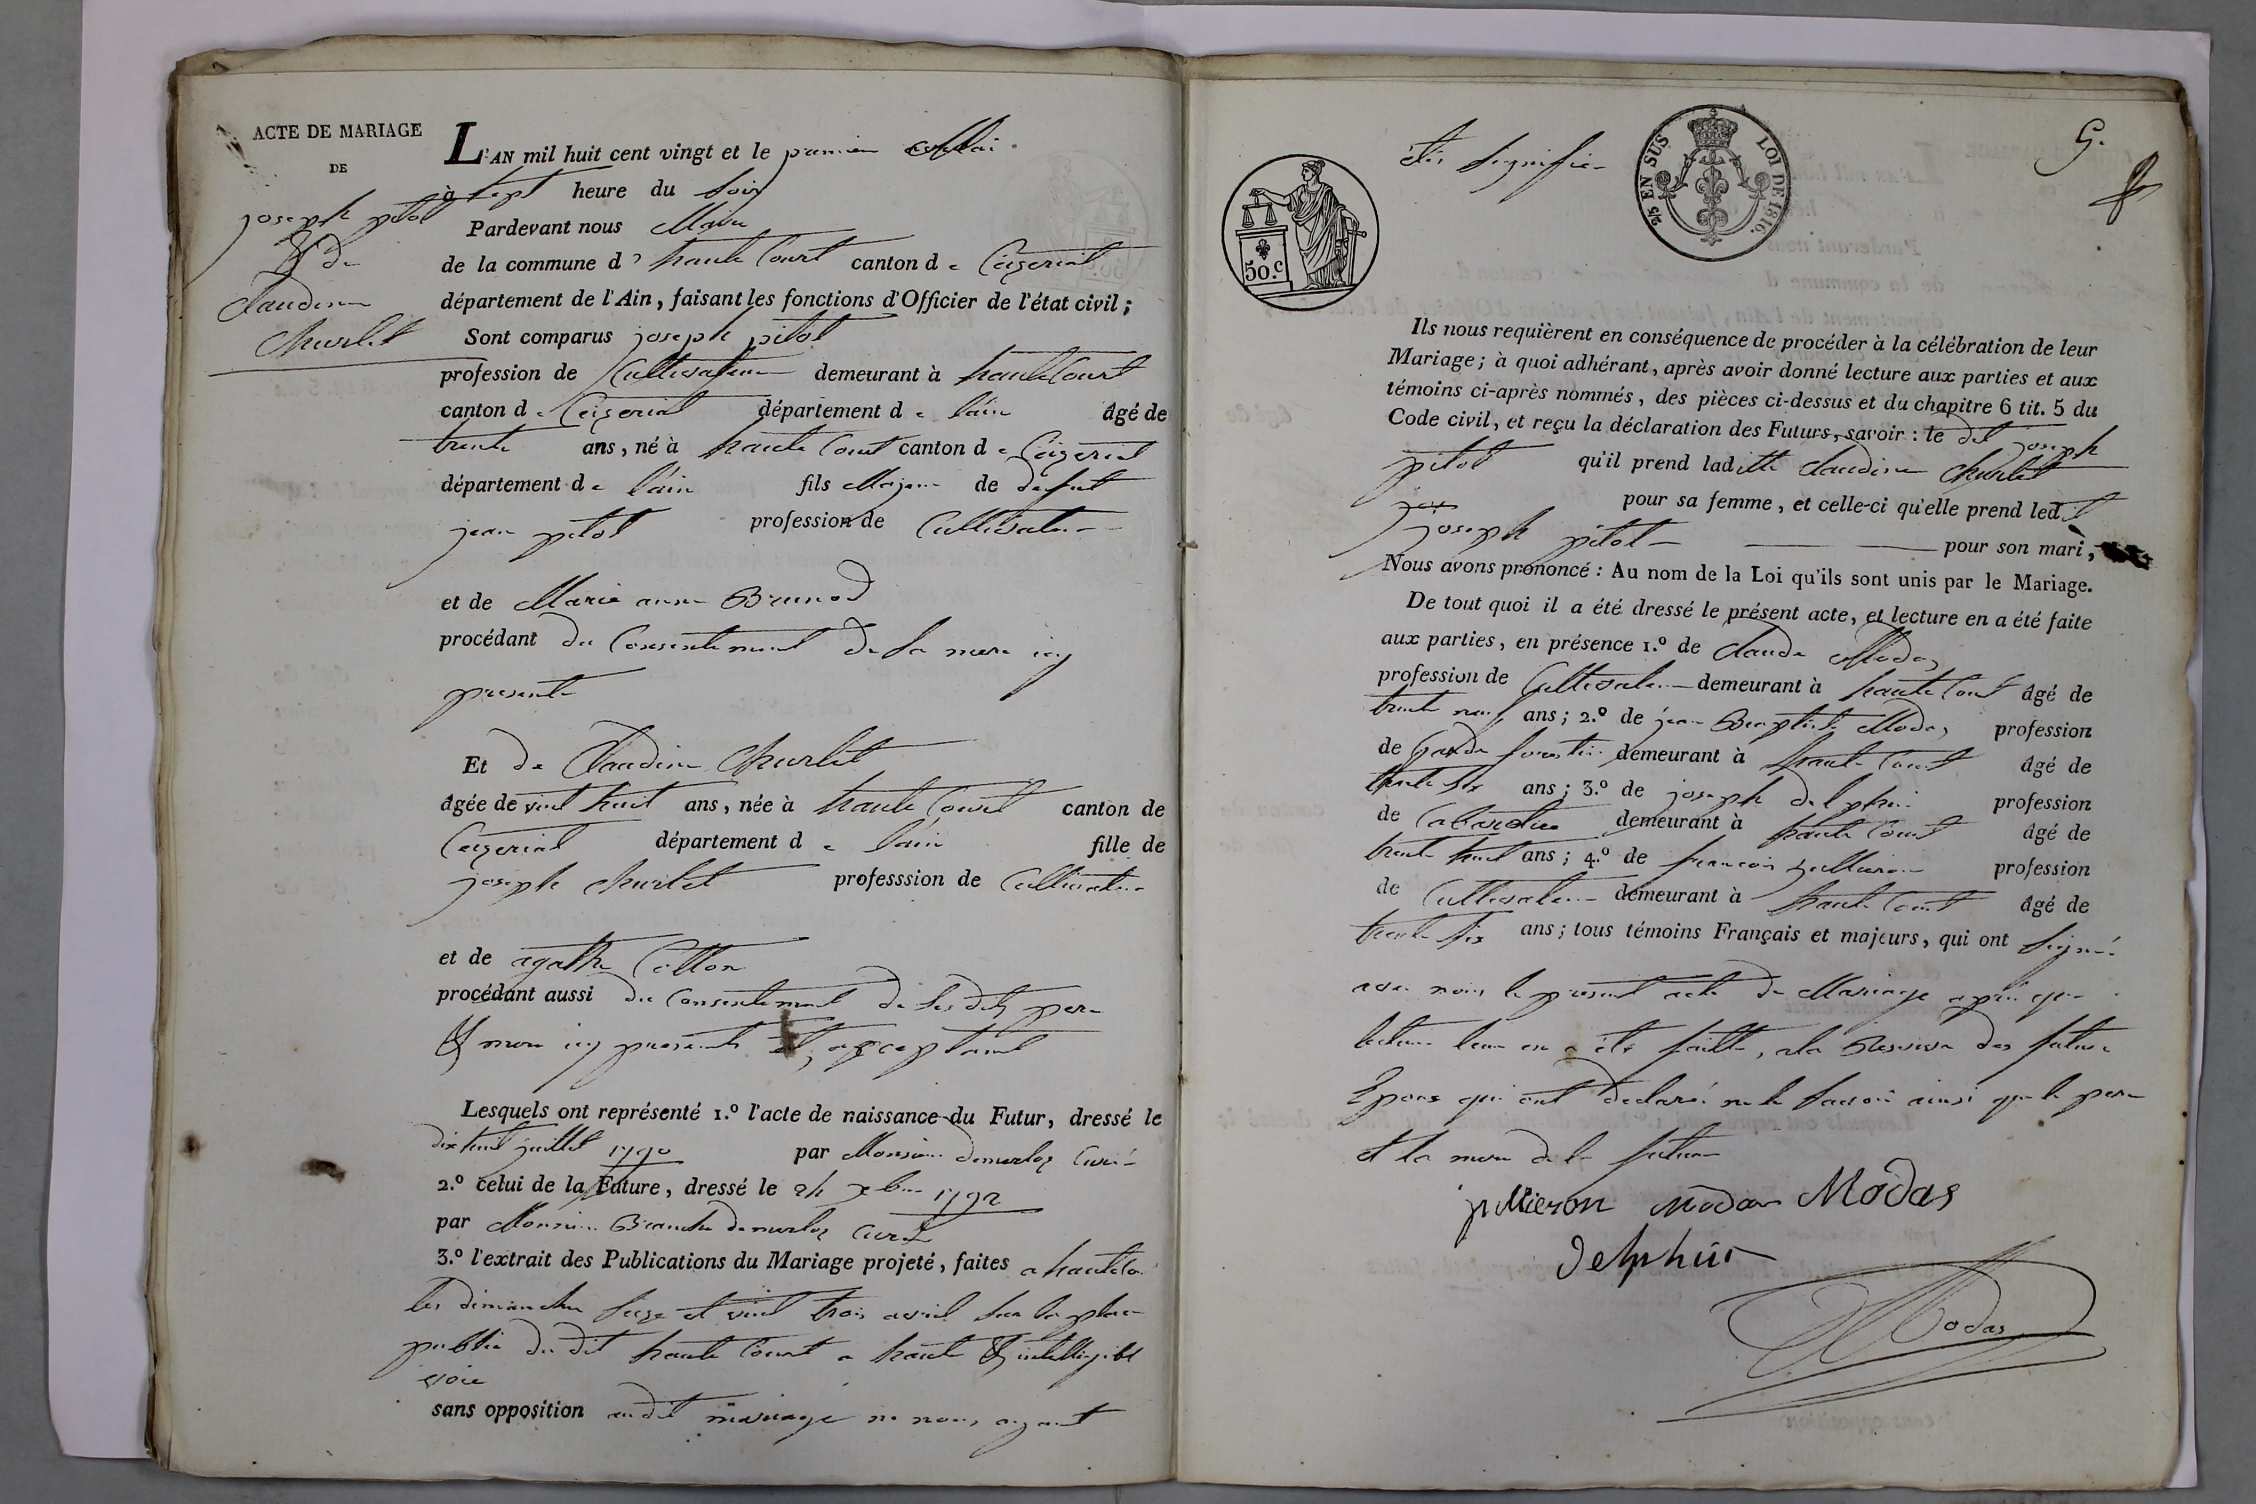 ACTE DE MARIAGE
DE
joseph pitot
& de
Claudine
Churlet
L'AN mil huit cent vingt et le premier Mai
à sept heure du soir
Pardevant nous Maire
de la commune d' haute Court canton de Ceyzeriat
département de l'Ain, faisant les fonctions d'Officier de l'état civil ;
Sont comparus joseph pitot
profession de Cultivateur demeurant à haute Court
canton de Ceyzeriat département de l'ain âgé de
trente ans, né à haute Court canton de Ceyzeriat
département de l'ain fils Majeur de défunt
jean pitot profession de Cultivateur
et de Marie anne Brunod
procédant du Consentement de sa mere icy
presente
Et de Claudine Churlet
âgée de vint huit ans, née à haute Court canton de
Ceyzeriat département de l'ain fille de
joseph Churlet professsion de Cultivateur
et de agathe Cotton
procédant aussi du Consentement de ses dits pere
& mere icy presents et acceptant
Lesquels ont représenté 1.º l'acte de naissance du Futur, dressé le
dix huit juillet 1790 par Monsieur curé
2.º celui de la Future, dressé le 24 1792
par Monsieur curé
3.º l'extrait des Publications du Mariage projeté, faites a haute Court
les dimanches seize et vint trois avril sur la place
public du dit haute Court a haute & intelligible
voie
sans opposition audit mariage ne nous ayant
été signifiée
2/5 EN SUS LOI DE 1816.
50.c
5.
Ils nous requièrent en conséquence de procéder à la célébration de leur
Mariage ; à quoi adhérant, après avoir donné lecture aux parties et aux
témoins ci-après nommés, des pièces ci-dessus et du chapitre 6 tit. 5 du
Code civil, et reçu la déclaration des Futurs, savoir : le dit joseph
pitot qu'il prend laditte Claudine Churlet
pour sa femme, et celle-ci qu'elle prend ledit
joseph pitot pour son mari,
Nous avons prononcé : Au nom de la Loi qu'ils sont unis par le Mariage.
De tout quoi il a été dressé le présent acte, et lecture en a été faite
aux parties, en présence 1.º de Claude Modas
profession de Cultivateur demeurant à haute Court âgé de
trente neuf ans ; 2.º de jean Baptiste Modas profession
de Garde forestier demeurant à haute Court âgé de
trente six ans ; 3.º de joseph delphin profession
de Cabaretier demeurant à haute Court âgé de
trente huit ans ; 4.º de francois jullieron profession
de Cultivateur demeurant à haute Court âgé de
trente six ans ; tous témoins Français et majeurs, qui ont signé
avec nous le present acte de Mariage après que
lecture leur en a été faitte, a la Reserve des futurs
Epoux qui ont declaré ne le savoir ainsi que le pere
et la mere de la future
jullieron Modas Modas
Delphin
Modas